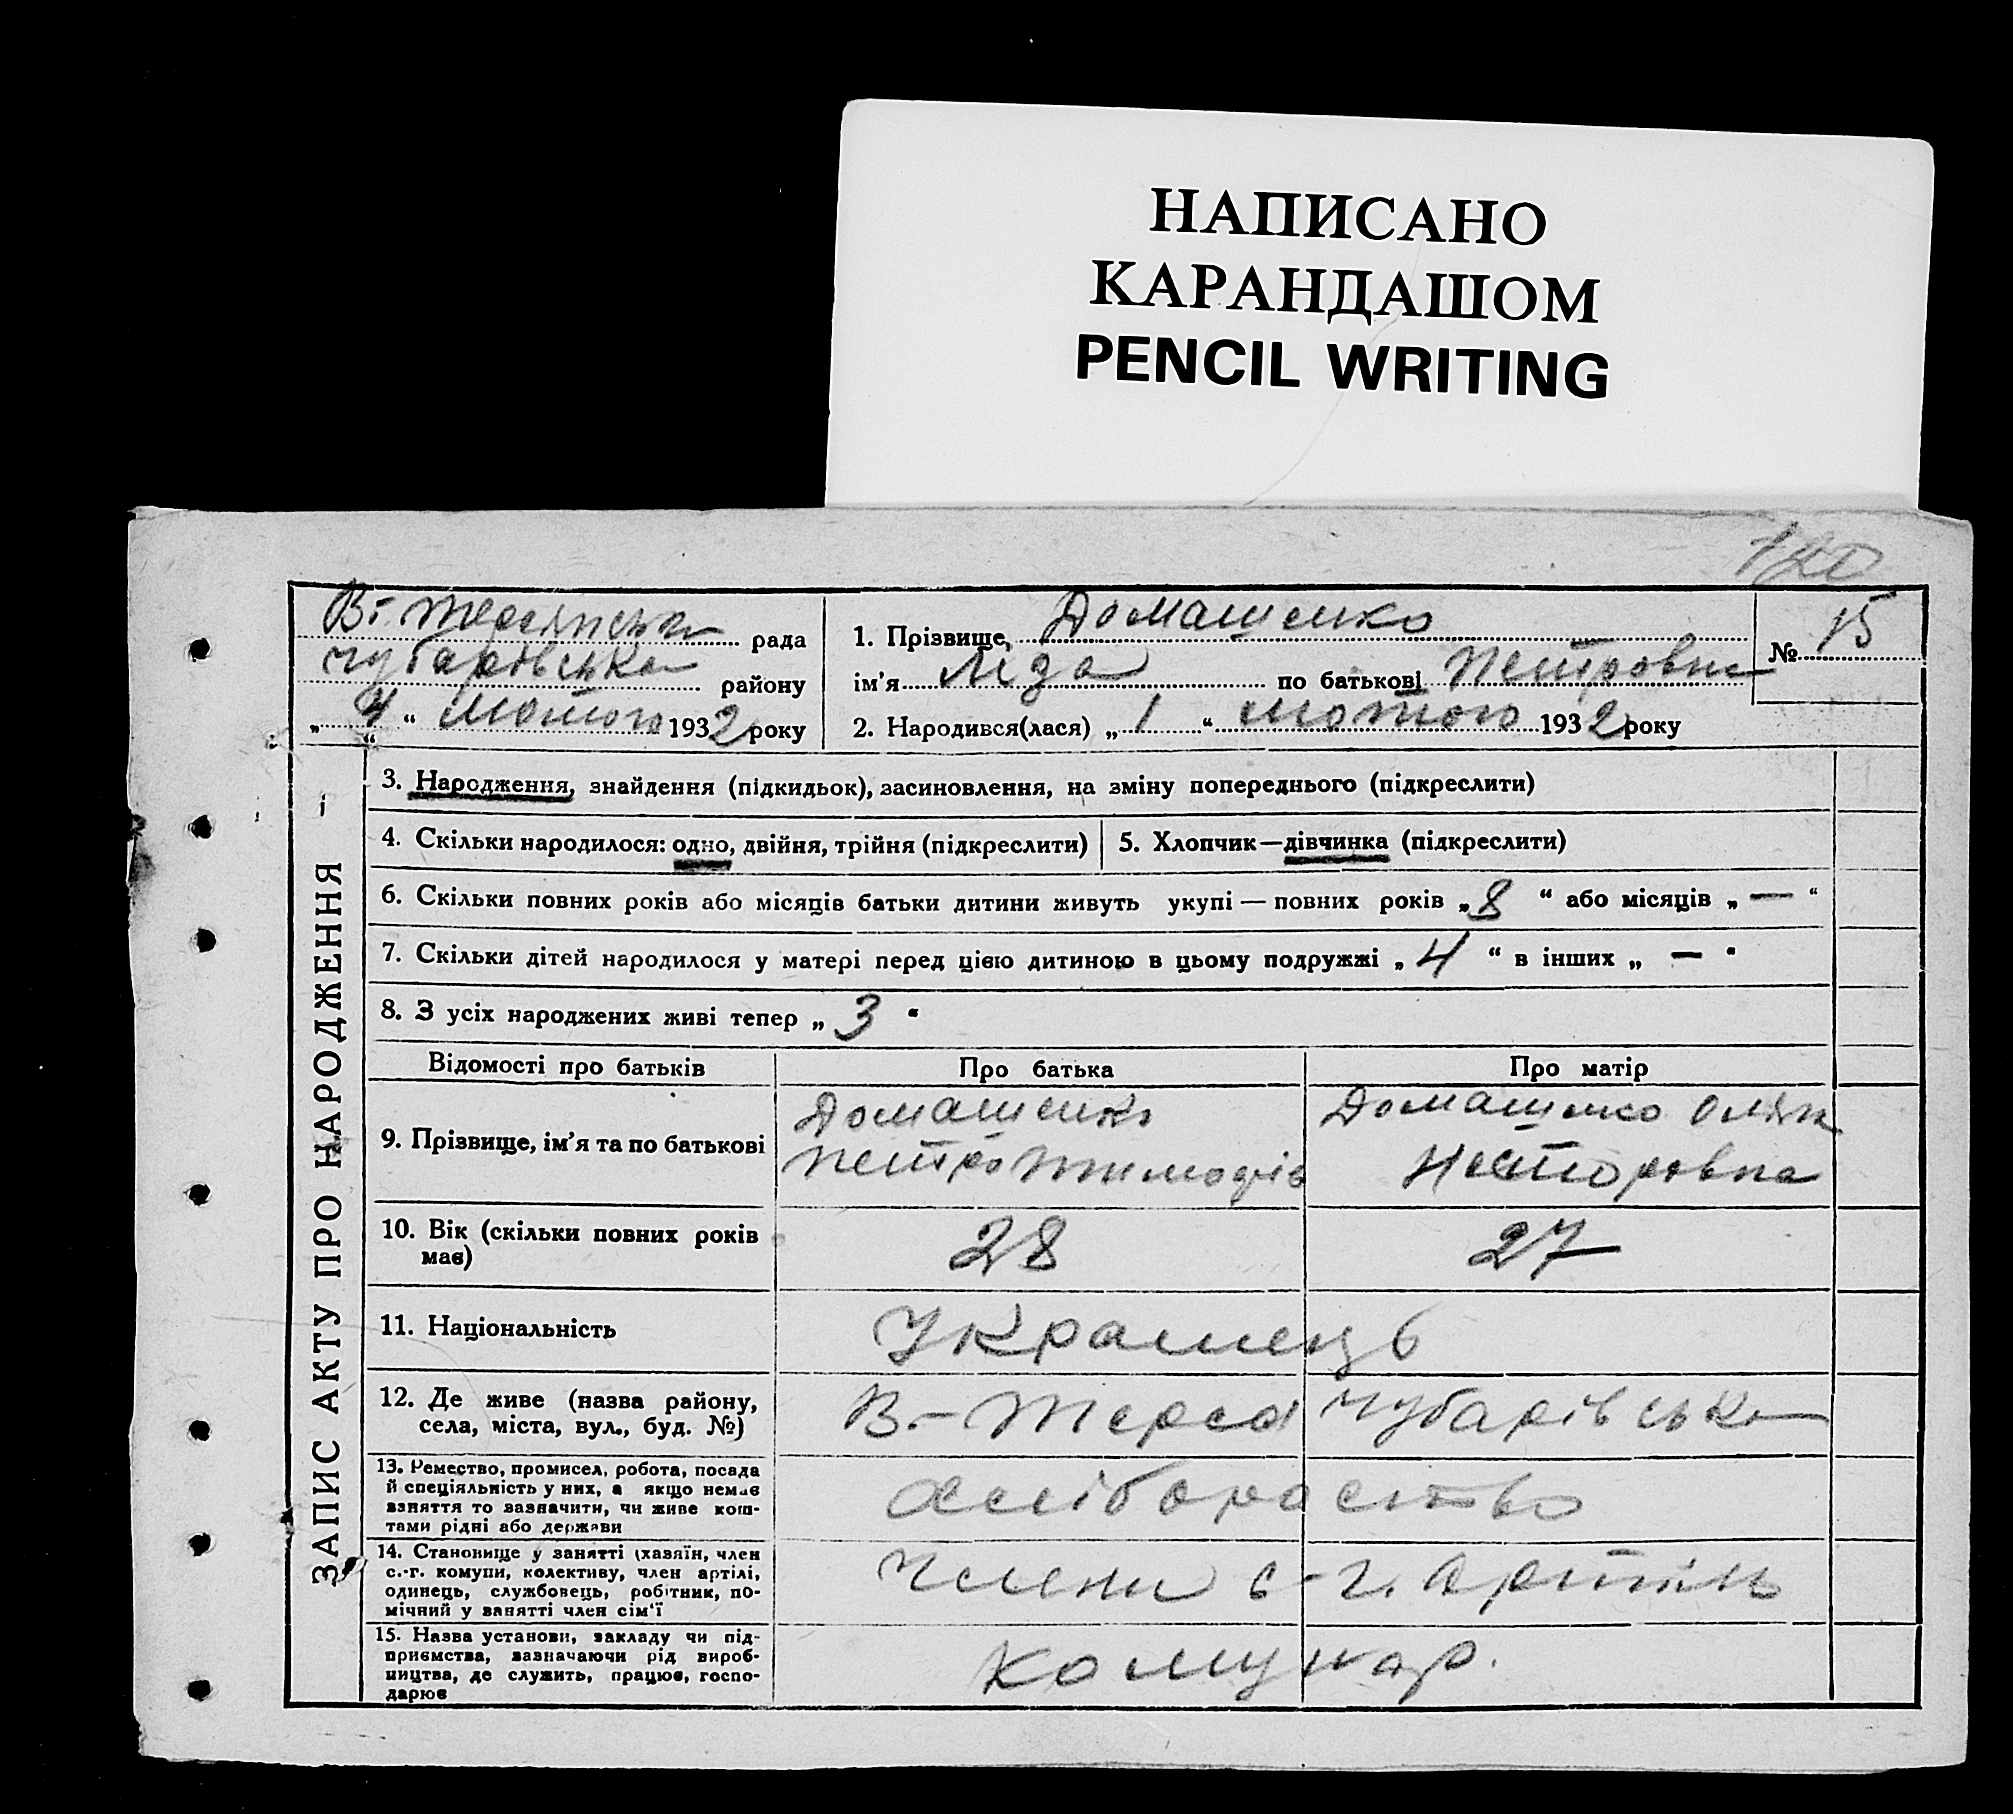 НАПИСАНО
КАРАНДАШОМ
PENCIL WRITING
120
В-Терсянська рада
Чубарівська району
„ 4 “ Лютого 1932 року
1. Прізвище, Домашенко
ім'я Ліда по батькові Петровна
№ 15
2. Народився(лася) „ 1 “ Лютого 1932 року
ЗАПИС АКТУ ПРО НАРОДЖЕННЯ
3. Народження, знайдення (підкидьок), засиновлення, на зміну попереднього (підкреслити)
4. Скільки народилося: одно, двійня, трійня (підкреслити)
5. Хлопчик—дівчинка (підкреслити)
6. Скільки повних років або місяців батьки дитини живуть укупі — повних років „ 8 “ або місяців „ — “
7. Скільки дітей народилося у матері перед цією дитиною в цьому подружжі „ 4 “ в інших „ — “
8. З усіх народжених живі тепер „ 3 “
Відомості про батьків Про батька Про матір
9. Прізвище, ім'я та по батькові
Домашенко
Петро Тимофів
Домашенко
Несторовна
10. Вік (скільки повних років
має)
28 27
11. Національність
Українець
12. Де живе (назва району,
села, міста, вул., буд. №)
В-Терса Чубарівська
13. Ремество, промисел, робота, посада
й спеціяльність у них, а якщо немає
заняття то зазначити, чи живе кош-
тами рідні або держави
хліборобство
14. Становище у занятті (хазяїн, член
с.-г. комуни, колективу, член артілі,
одинець, службовець, робітник, по-
мічний у занятті член сім'ї
члени с-г. артіль
15. Назва установи, закладу чи під-
приємства, зазначаючи рід вироб-
ництва, де служить, працює, госпо-
дарює
Комунар.